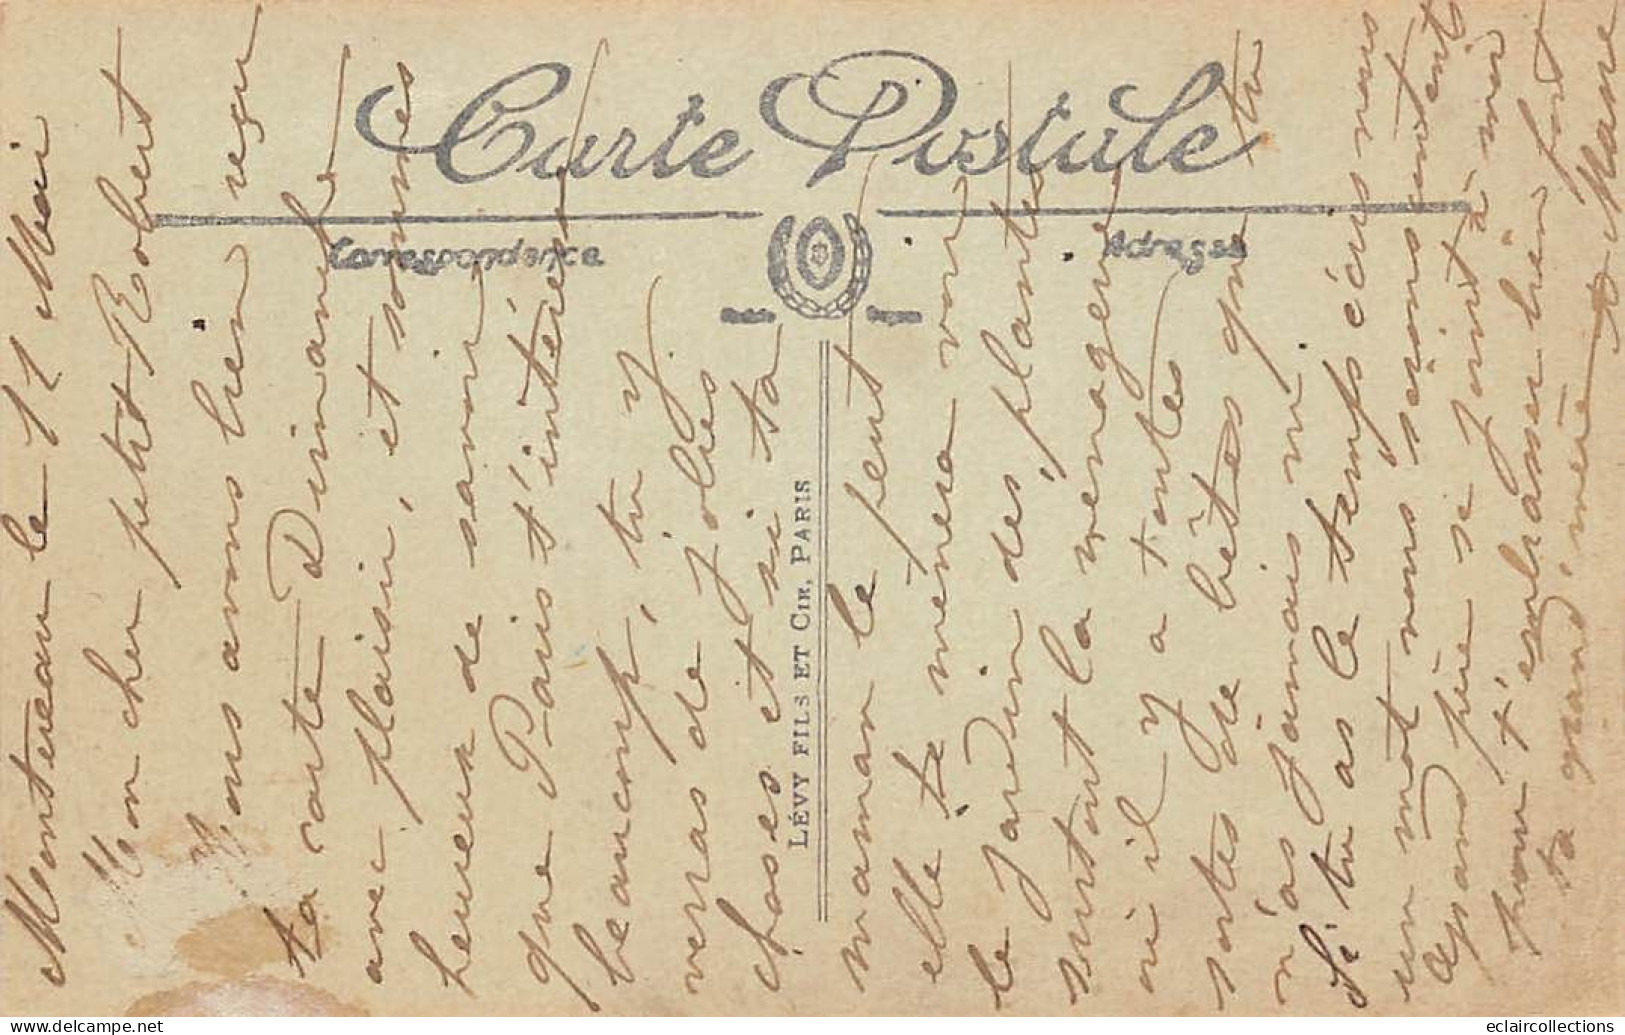 Carte Postale
Correspondance
Adresse
LÉVY FILS ET CIE, PARIS
Montereau le 11 Mai
Mon cher petit Robert
Nous avons bien reçu
ta carte Dimanche
avec plaisir, et sommes
heureux de savoir
que Paris t'intéresse
beaucoup, tu y
verras de jolies
choses et si ta
maman le peut
elle te mènera voir
le jardin des plantes
surtout la ménagerie
où il y a toutes
sortes de bêtes que tu
n'as jamais vu
Si tu as le temps écris nous
un mot nous serions content
Grand père se joint à moi
pour t'embrasser bien fort
ta grand, mère
delcampe.net
eclaircollections